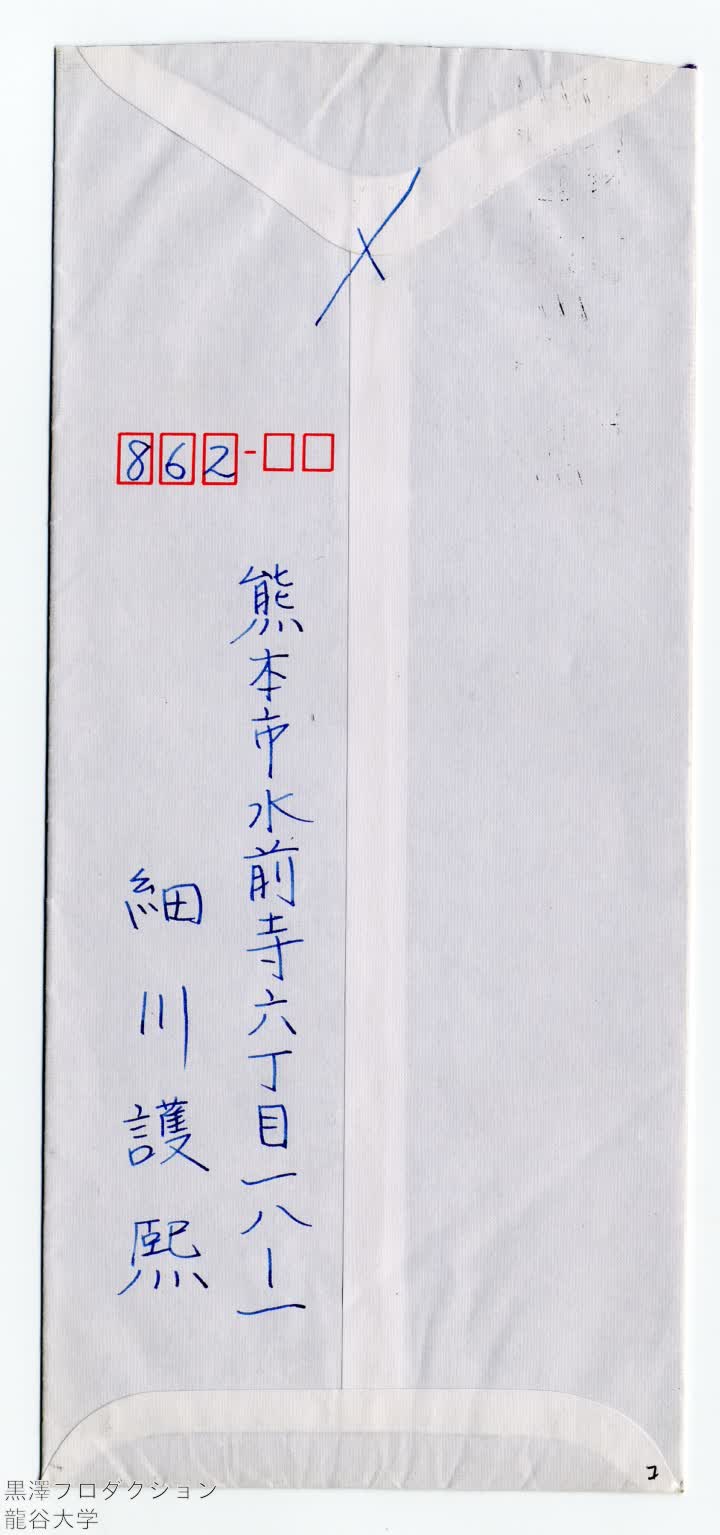 862-
熊本市水前寺六丁目一八ー一
細川護熙
黒澤プロダクション
龍谷大学